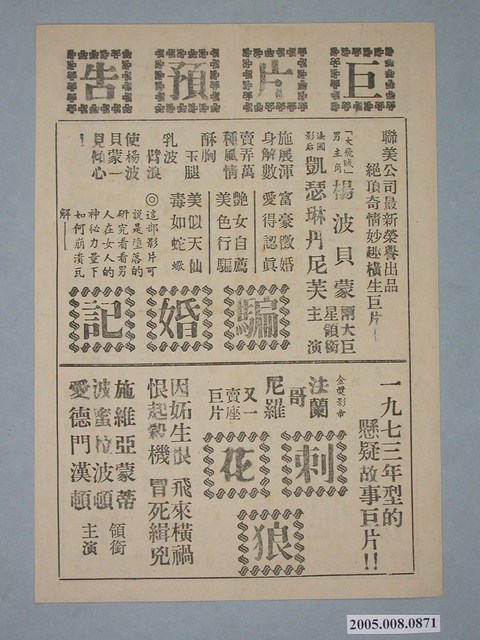 巨片預告
聯美公司最新榮譽出品
絕頂奇情妙趣橫生巨片！
「大飛賊」
男主角
楊波貝蒙
法國
影后
凱瑟琳丹尼芙
兩大巨
星領銜
主演
施展渾
身解數
賣弄萬
種風情
酥胸
玉腿
乳波
臀浪
使楊波
貝蒙一
見傾心
！
富豪徵婚
愛得認真
艷女自薦
美色行騙
美似天仙
毒如蛇蠍
◎這部影片可
說是墮落的
研究看看男
人在女人的
神秘力量下
如何崩潰瓦
解——
騙婚記
一九七三年型的
懸疑故事巨片!!
金獎影帝
法蘭
哥
尼羅
又一
賣座
巨片
刺花狼
因妬生恨 飛來橫禍
恨起殺機 冒死緝兇
施維亞蒙蒂
波蜜拉波頓
愛德門漢頓
領銜
主演
2005.008.0871